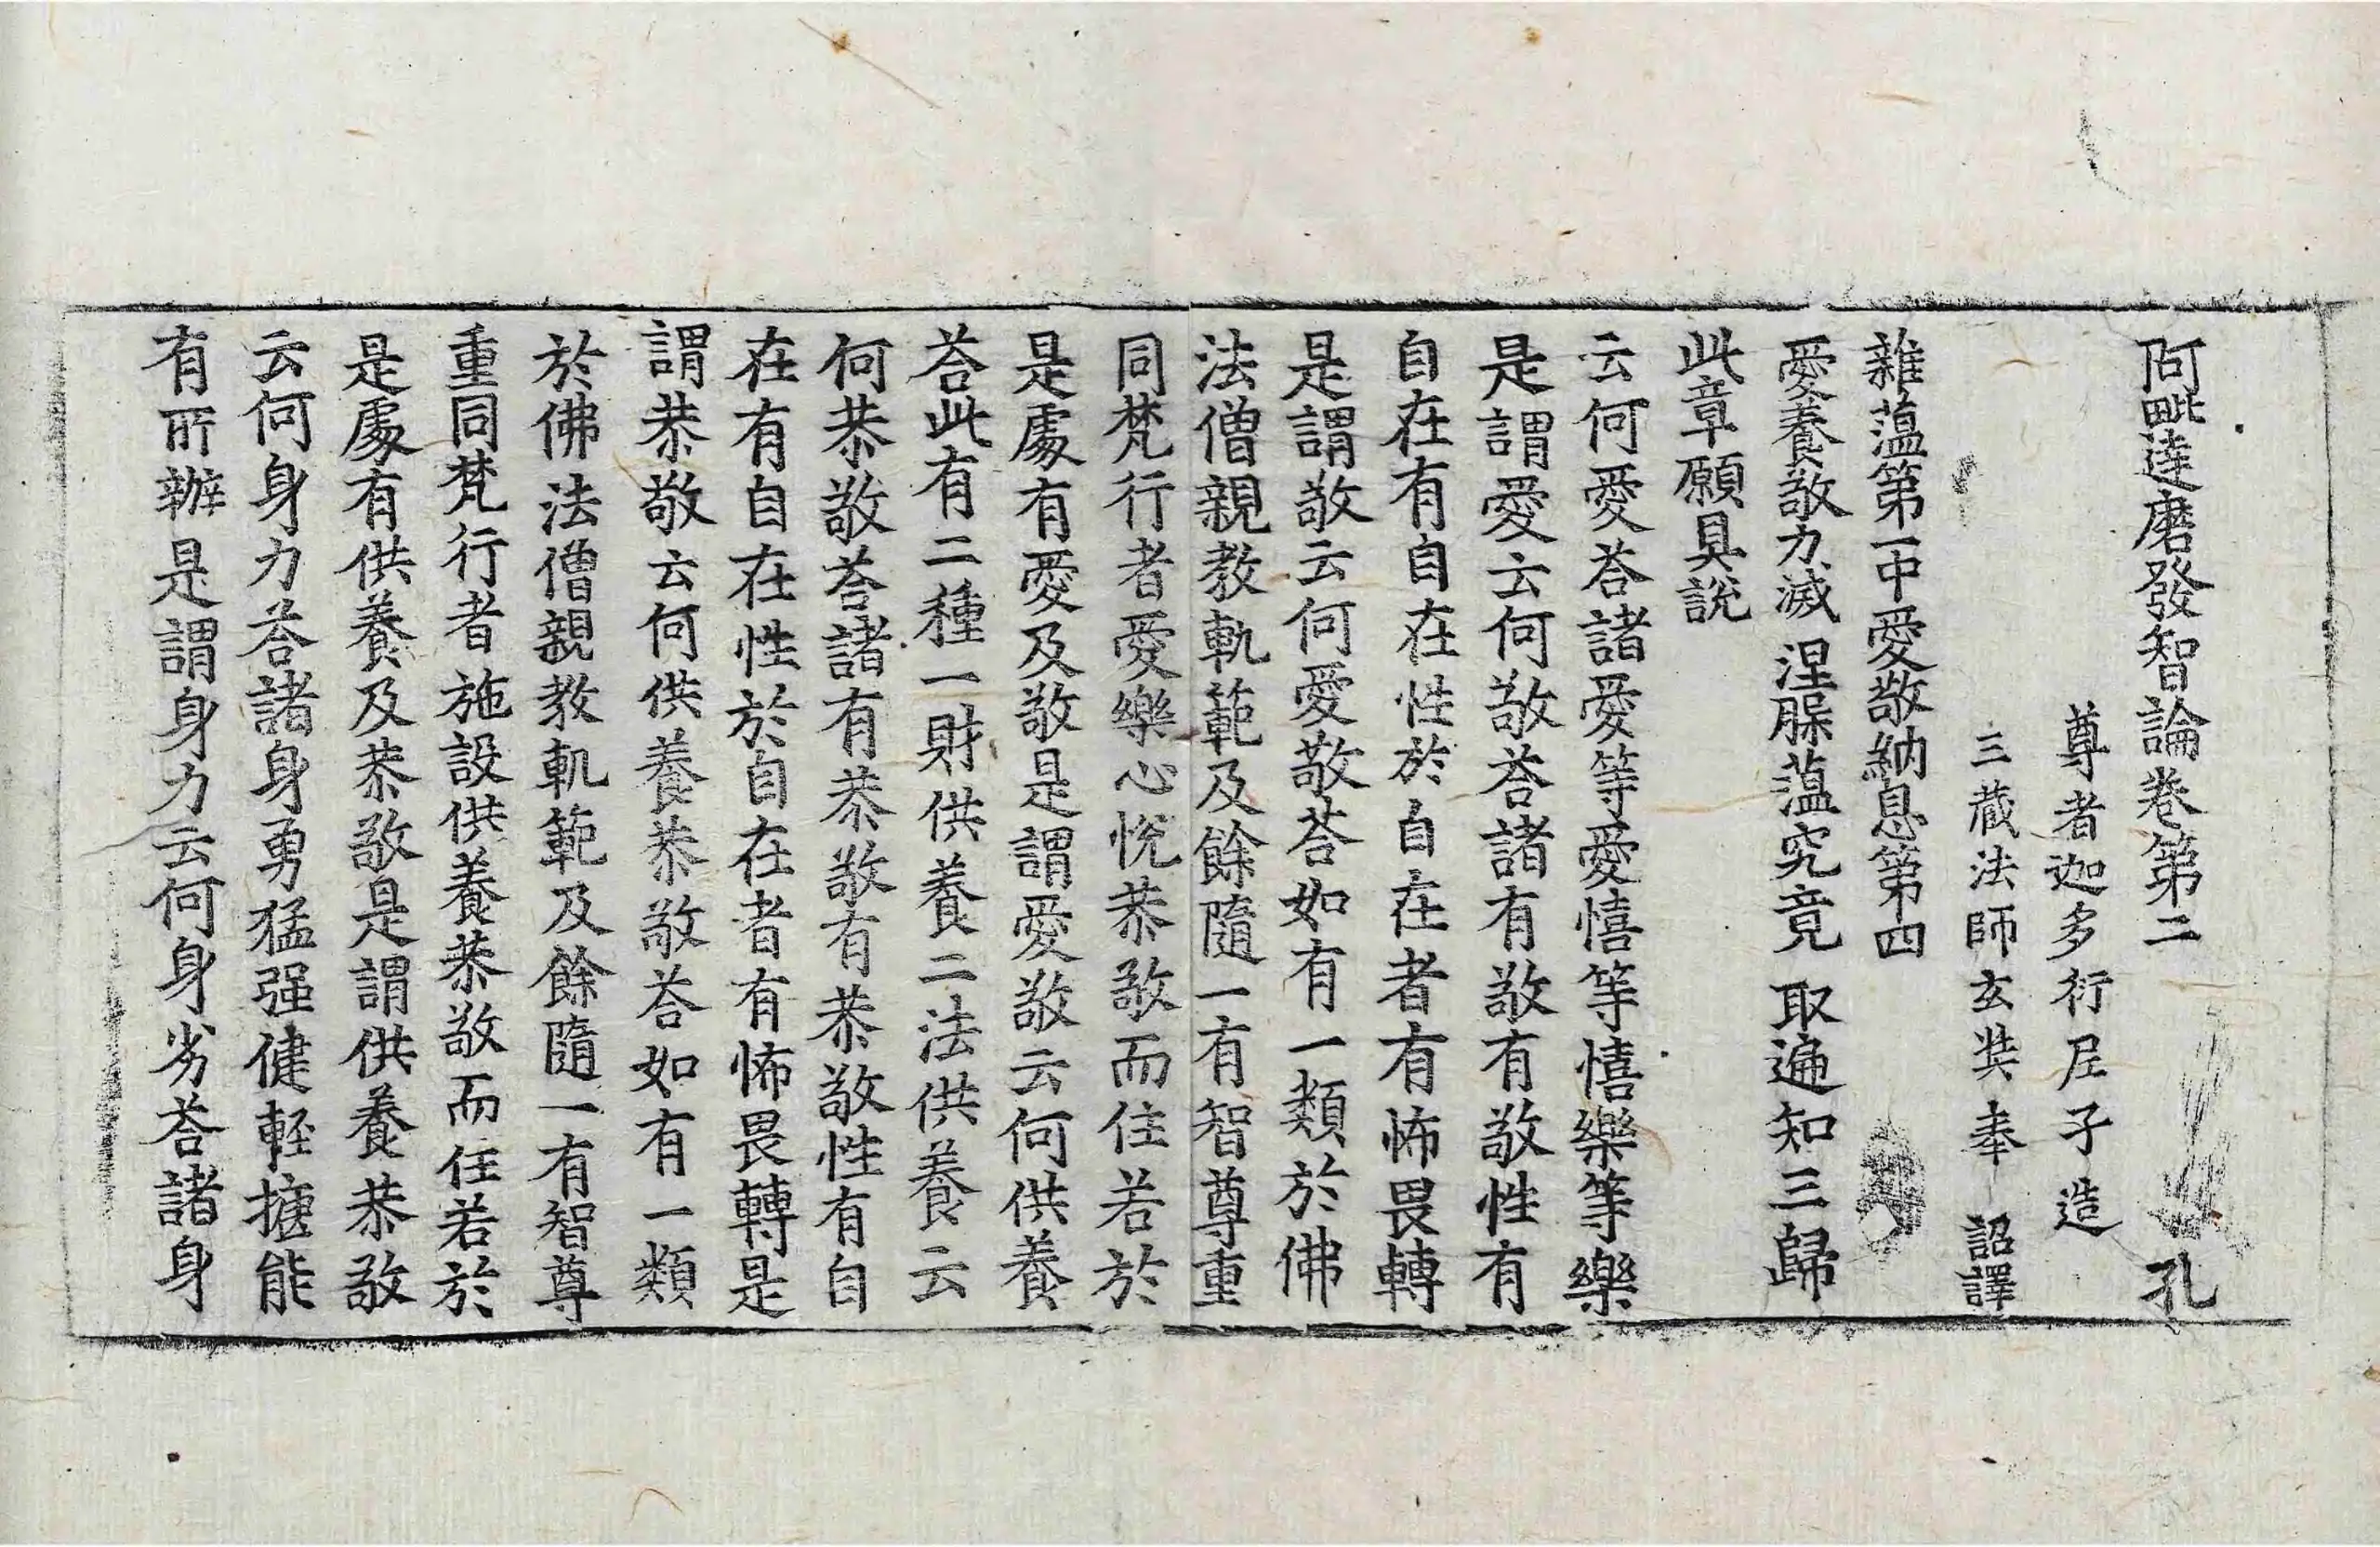 阿毗達磨發智論卷第二 孔
尊者迦多衍尼子造
三藏法師玄奘奉 詔譯
雜蕰第一中愛敬納息第四
愛養敬力滅 涅槃蕰究竟 取遍知三歸
此章願具說
云何愛荅諸愛等愛憘等憘樂等樂
是謂愛云何敬荅諸有敬有敬性有
自在有自在性於自在者有怖畏轉
是謂敬云何愛敬荅如有一類於佛
法僧親教軌範及餘隨一有智尊重
同梵行者愛樂心悅恭敬而住若於
是處有愛及敬是謂愛敬云何供養
荅此有二種一財供養二法供養云
何恭敬荅諸有恭敬有恭敬性有自
在有自在性於自在者有怖畏轉是
謂恭敬云何供養恭敬荅如有一類
於佛法僧親教軌範及餘隨一有智尊
重同梵行者施設供養恭敬而住若於
是處有供養及恭敬是謂供養恭敬
云何身力荅諸身勇猛强健輕㨗能
有所辦是謂身力云何身劣荅諸身